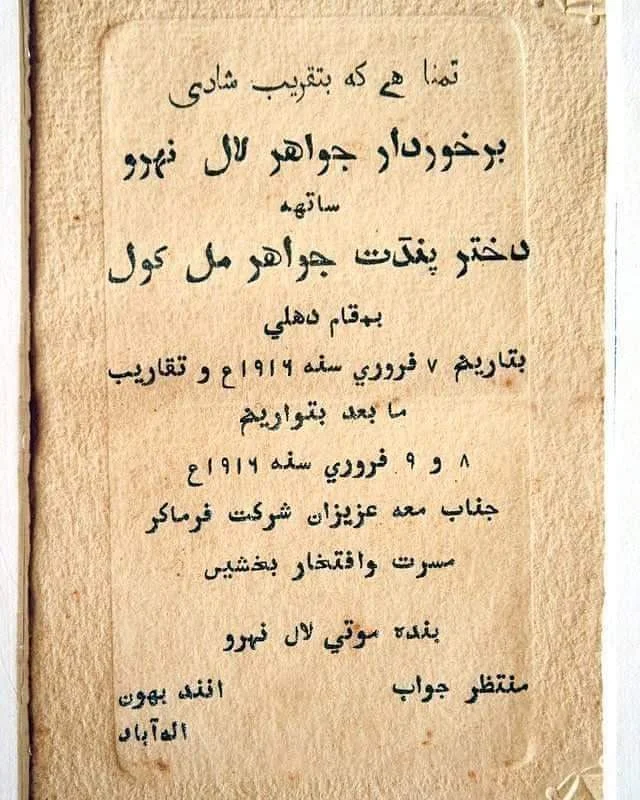 تمنا هے کہ بتقریب شادی
برخوردار جواهر لال نهرو
ساتهه
دختر پنڈت جواهر مل کول
بمقام دهلي
بتاریخ ۷ فروري سنه ۱۹۱۶ع و تقاریب
ما بعد بتواریخ
۸ و ۹ فروري سنه ۱۹۱۶ع
جناب معه عزیزان شرکت فرماکر
مسرت وافتخار بخشیں
بنده موتي لال نهرو
منتظر جواب
انند بهون
الهآباد